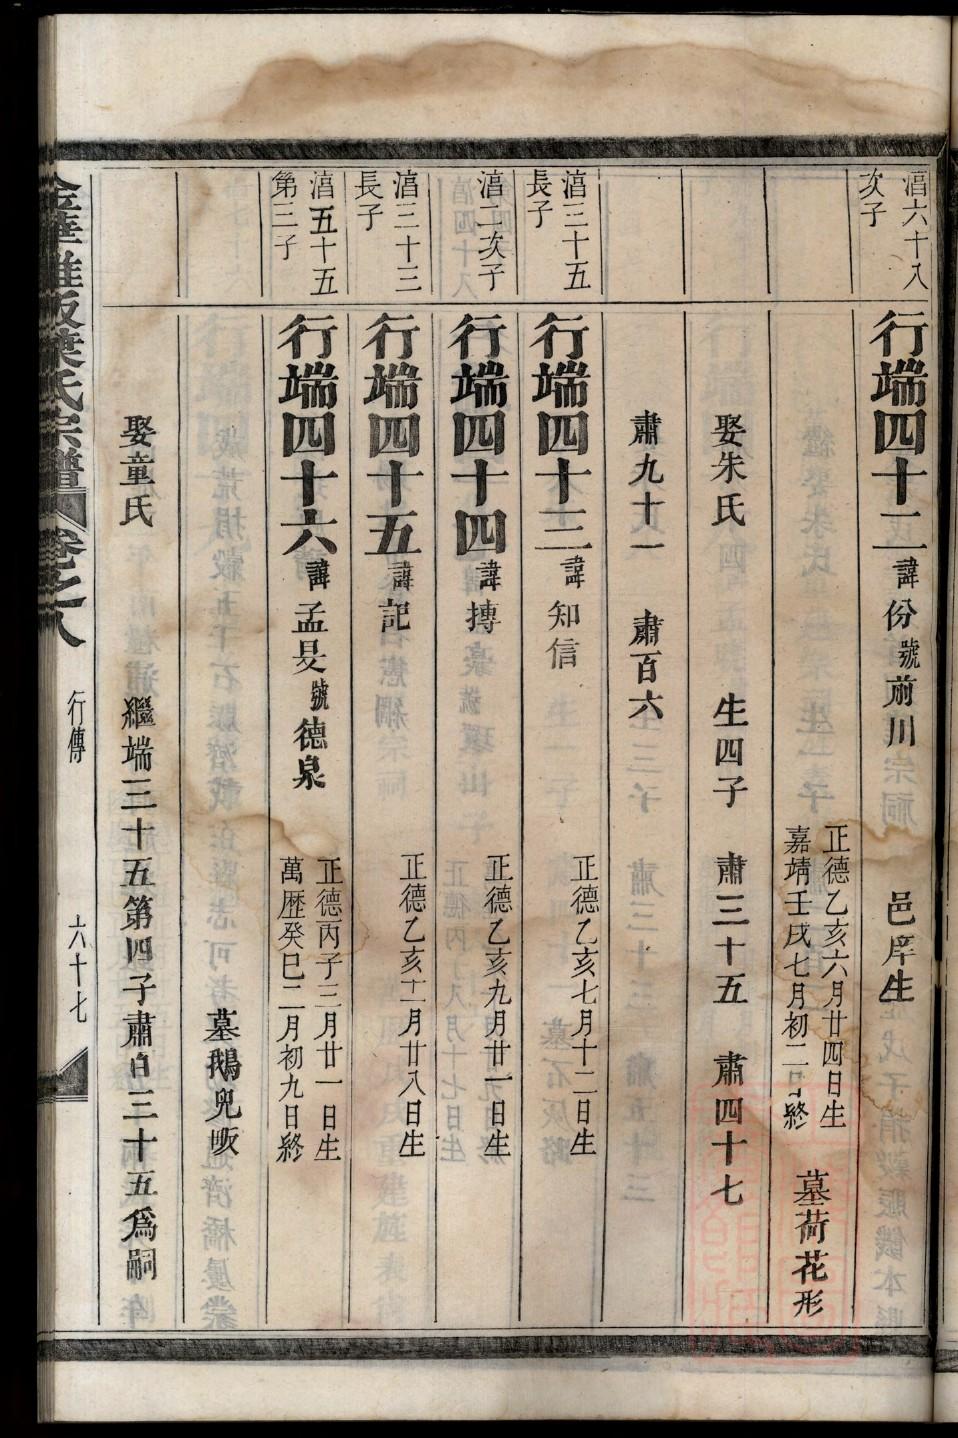 湻六十八
次子
行端四十二諱份號前川 邑庠生
正德乙亥六月廿四日生
嘉靖壬戌七月初二日終
墓荷花形
娶朱氏 生四子 肅三十五 肅四十七
肅九十一 肅百六
湻三十五
長子
行端四十三諱知信 正德乙亥七月十二日生
湻二次子
行端四十四諱摶 正德乙亥九月廿一日生
湻三十三
長子
行端四十五諱記 正德乙亥十一月廿八日生
湻五十五
第三子
行端四十六諱孟旻號德泉
正德丙子三月廿一日生
萬歷癸巳二月初九日終
墓鵝兜畈
娶童氏 繼端三十五第四子肅百三十五爲嗣
葉氏宗譜 卷之八 行傳 六十七